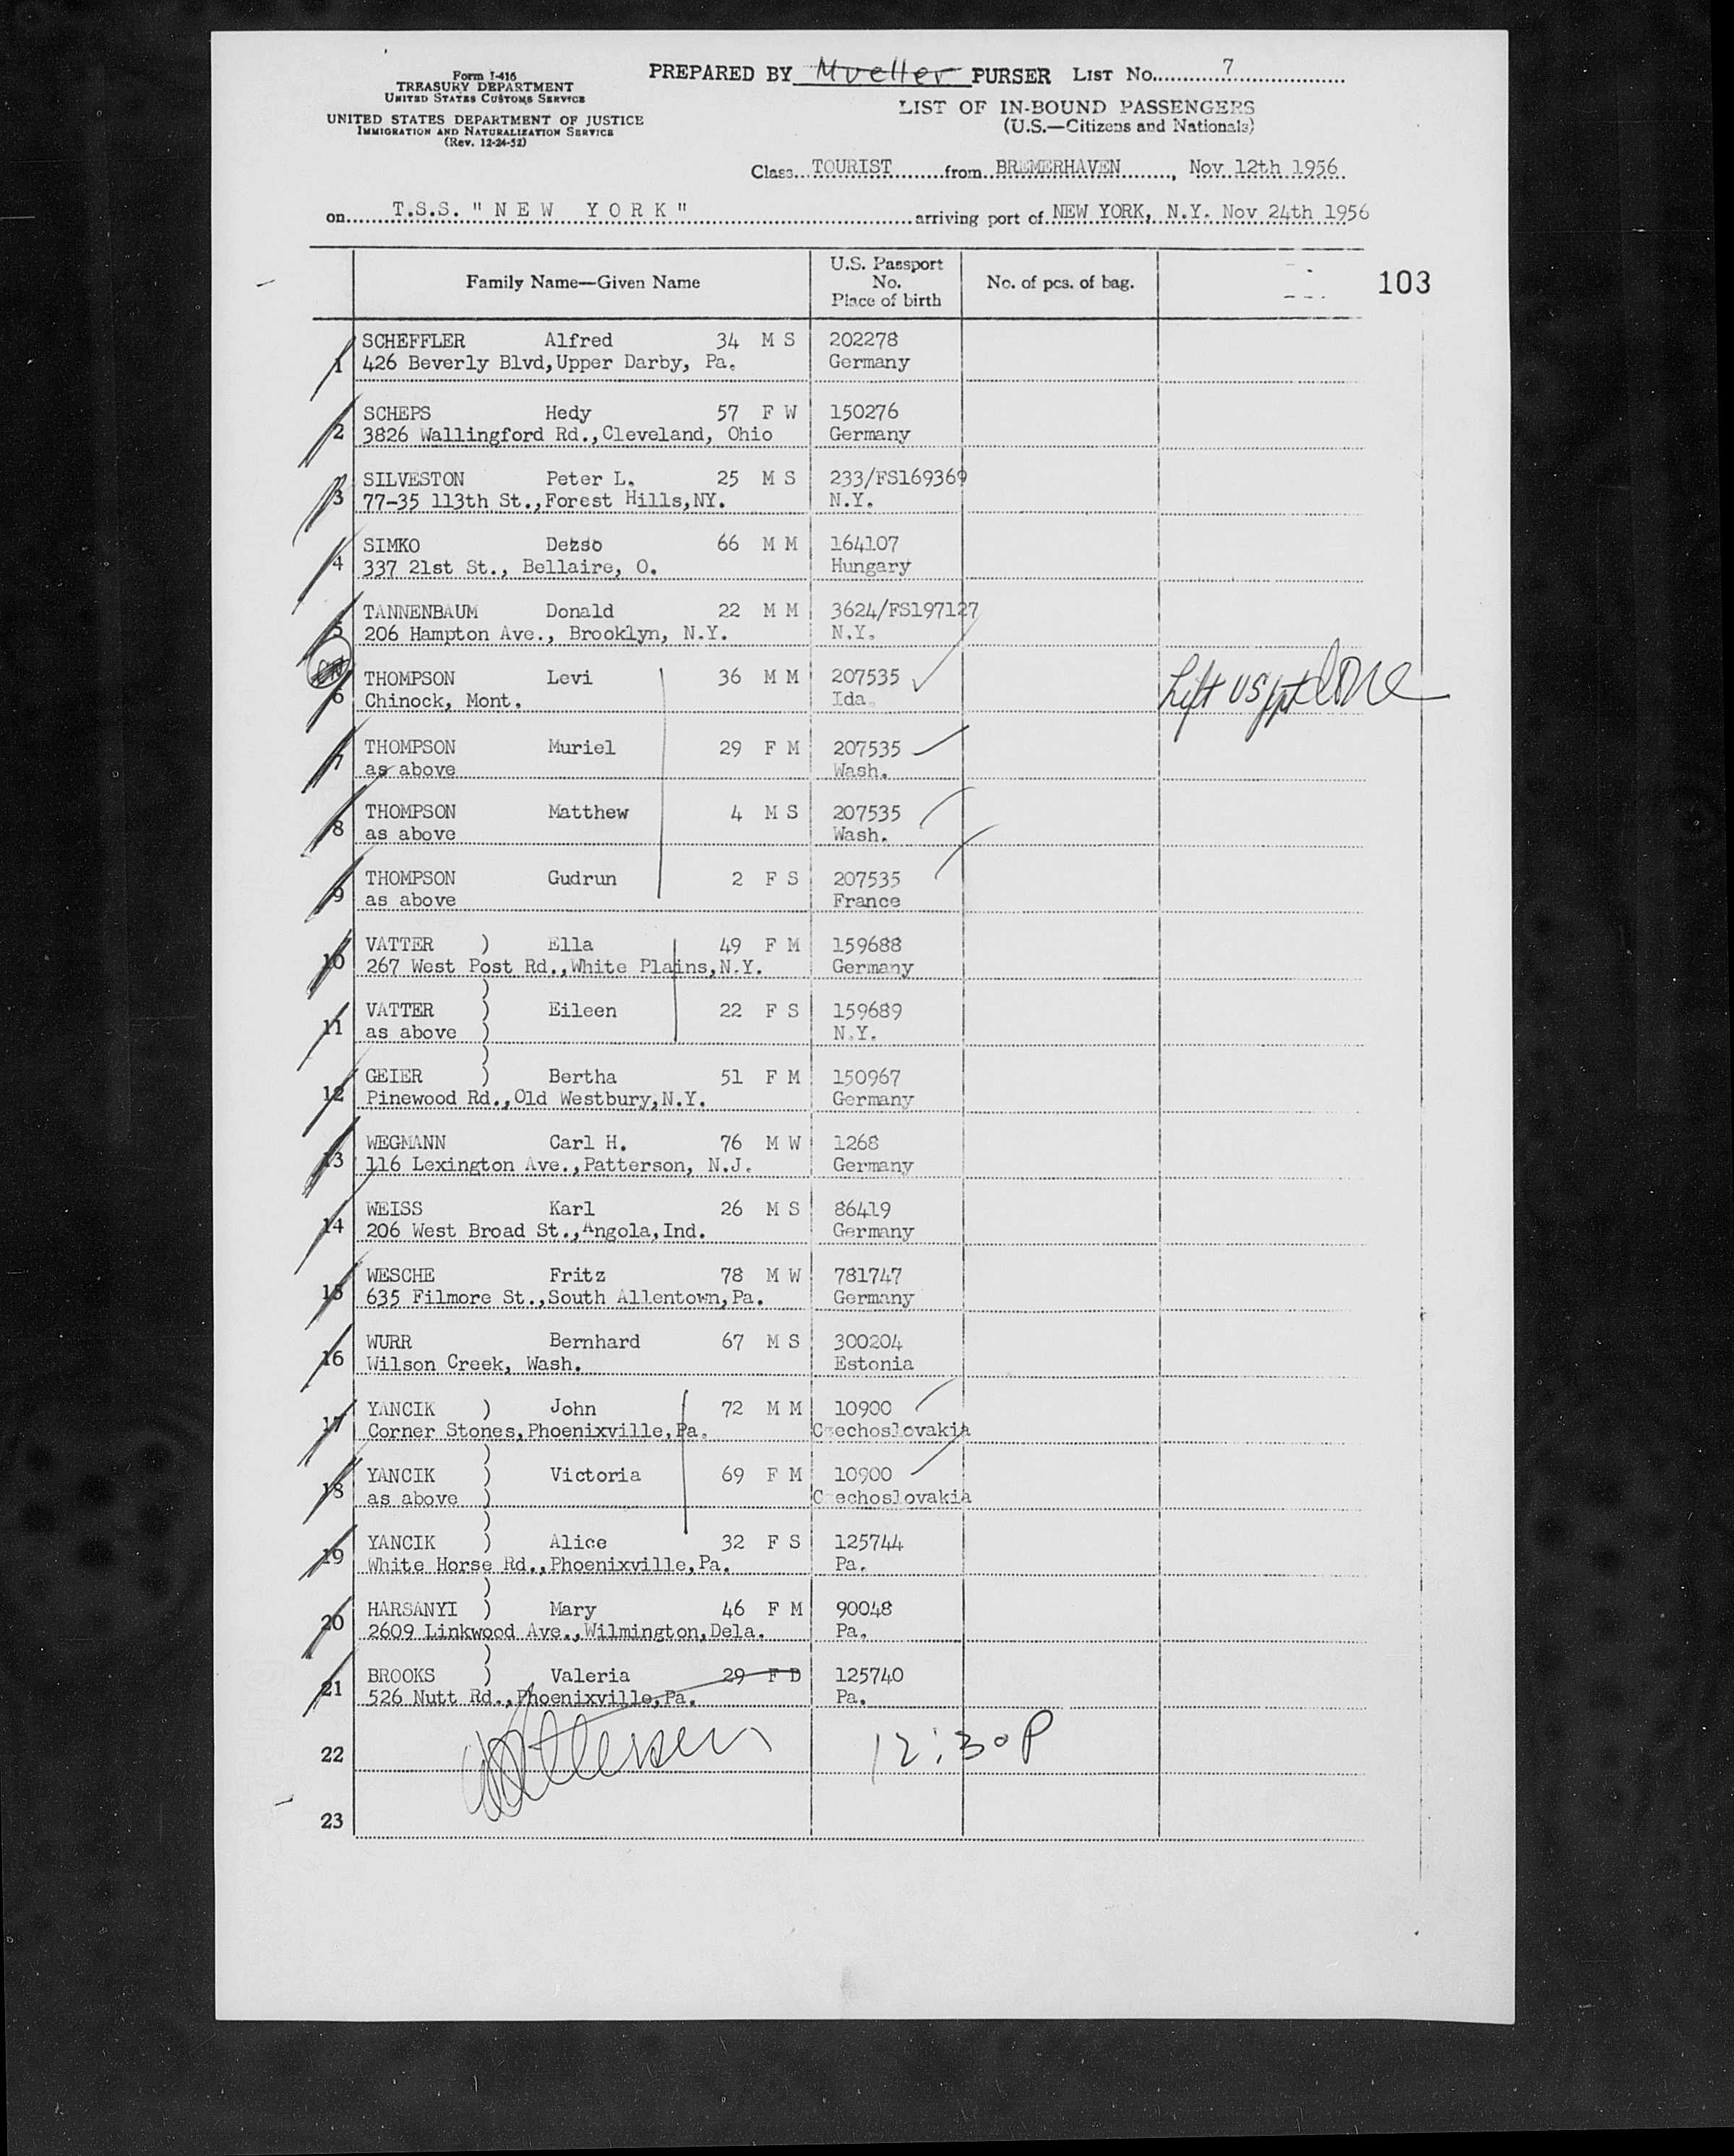 Form I-416
TREASURY DEPARTMENT
UNITED STATES CUSTOMS SERVICE
UNITED STATES DEPARTMENT OF JUSTICE
IMMIGRATION AND NATURALIZATION SERVICE
(Rev. 12-24-52)
PREPARED BY Mueller PURSER LIST No. 7
LIST OF IN-BOUND PASSENGERS
(U.S.—Citizens and Nationals)
Class TOURIST from BREMERHAVEN, Nov 12th 1956
on T.S.S. "NEW YORK" arriving port of NEW YORK, N.Y. Nov 24th 1956
Family Name—Given Name U.S. Passport No. Place of birth No. of pcs. of bag. 103
1 SCHEFFLER Alfred 34 M S 202278
426 Beverly Blvd,Upper Darby, Pa. Germany
2 SCHEPS Hedy 57 F W 150276
3826 Wallingford Rd.,Cleveland, Ohio Germany
3 SILVESTON Peter L. 25 M S 233/FS169369
77-35 113th St.,Forest Hills,NY. N.Y.
4 SIMKO Dezso 66 M M 164107
337 21st St., Bellaire, O. Hungary
5 TANNENBAUM Donald 22 M M 3624/FS197127
206 Hampton Ave., Brooklyn, N.Y. N.Y.
6 THOMPSON Levi 36 M M 207535
Chinock, Mont. Ida. Lift US ppt done
7 THOMPSON Muriel 29 F M 207535
as above Wash.
8 THOMPSON Matthew 4 M S 207535
as above Wash.
9 THOMPSON Gudrun 2 F S 207535
as above France
10 VATTER ) Ella 49 F M 159688
267 West Post Rd.,White Plains,N.Y. Germany
)
11 VATTER ) Eileen 22 F S 159689
as above ) N.Y.
)
12 GEIER ) Bertha 51 F M 150967
Pinewood Rd.,Old Westbury,N.Y. Germany
13 WEGMANN Carl H. 76 M W 1268
116 Lexington Ave.,Patterson, N.J. Germany
14 WEISS Karl 26 M S 86419
206 West Broad St.,Angola,Ind. Germany
15 WESCHE Fritz 78 M W 781747
635 Filmore St.,South Allentown,Pa. Germany
16 WURR Bernhard 67 M S 300204
Wilson Creek, Wash. Estonia
17 YANCIK ) John 72 M M 10900
Corner Stones,Phoenixville,Pa. Czechoslovakia
)
18 YANCIK ) Victoria 69 F M 10900
as above ) Czechoslovakia
)
19 YANCIK ) Alice 32 F S 125744
White Horse Rd.,Phoenixville,Pa. Pa.
)
20 HARSANYI ) Mary 46 F M 90048
2609 Linkwood Ave.,Wilmington,Dela. Pa.
)
21 BROOKS ) Valeria 29 F D 125740
526 Nutt Rd.,Phoenixville,Pa. Pa.
22 12:30P
23